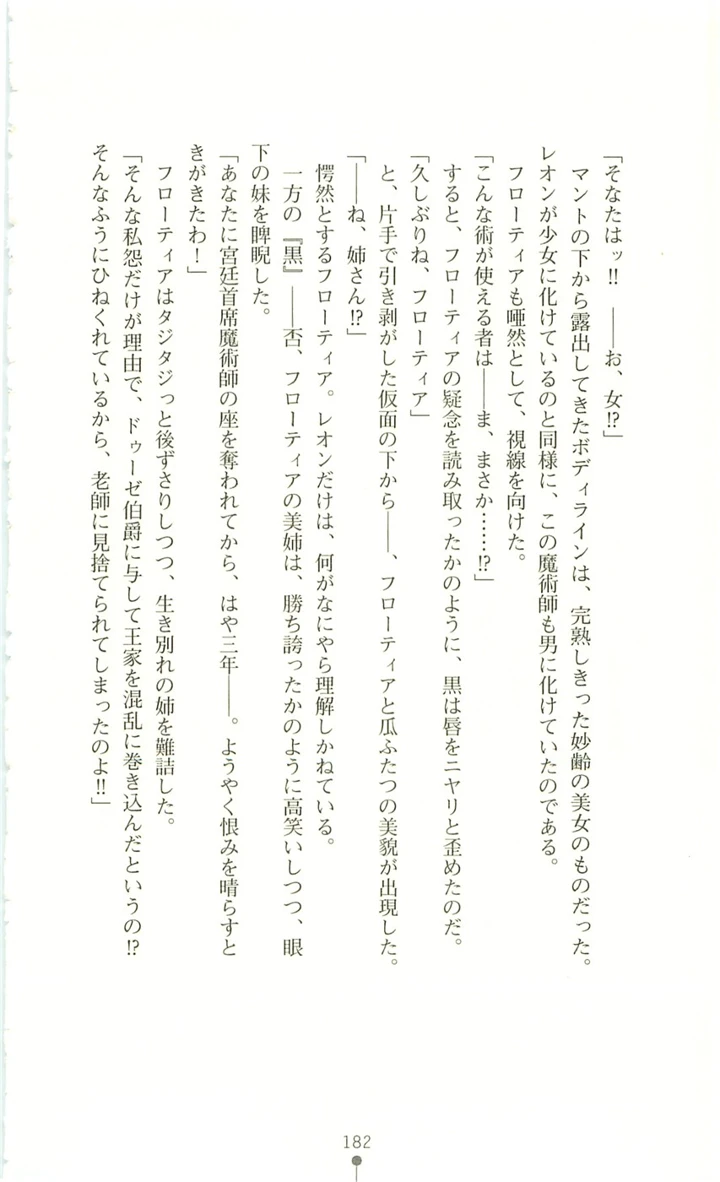 「そなたはッ!! ――お、女!?」
マントの下から露出してきたボディラインは、完熟しきった妙齢の美女のものだった。
レオンが少女に化けているのと同様に、この魔術師も男に化けていたのである。
フローティアも唖然として、視線を向けた。
「こんな術が使える者は――ま、まさか……!?」
すると、フローティアの疑念を読み取ったかのように、黒は唇をニヤリと歪めたのだ。
「久しぶりね、フローティア」
と、片手で引き剥がした仮面の下から――、フローティアと瓜ふたつの美貌が出現した。
「――ね、姉さん!?」
愕然とするフローティア。レオンだけは、何がなにやら理解しかねている。
一方の『黒』――否、フローティアの美姉は、勝ち誇ったかのように高笑いしつつ、眼
下の妹を睥睨した。
「あなたに宮廷首席魔術師の座を奪われてから、はや三年――。ようやく恨みを晴らすと
きがきたわ！」
フローティアはタジタジっと後ずさりしつつ、生き別れの姉を難詰した。
「そんな私怨だけが理由で、ドゥーゼ伯爵に与して王家を混乱に巻き込んだというの!?
そんなふうにひねくれているから、老師に見捨てられてしまったのよ!!」
182